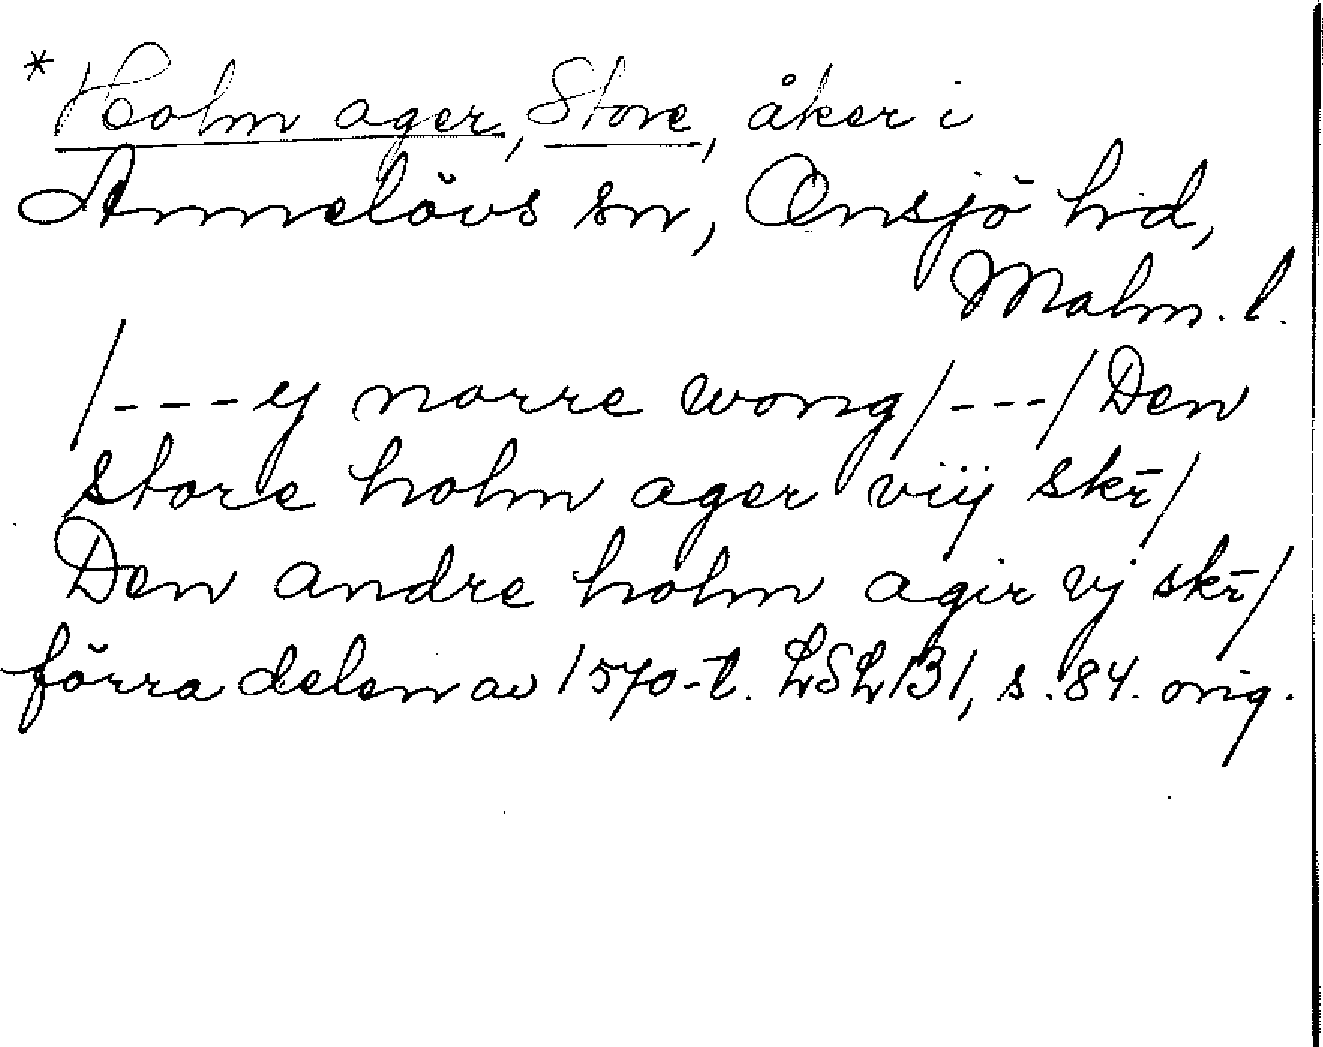 * Holm ager, Store, åker i
Annelövs sn, Onsjö hd,
Malm. l.
/---y norre wong/---/Den
store holm ager viij skr̄/
Den andre holm agir vj skr̄/
förra delen av 1570-t. LSLB1, s. 84. orig.